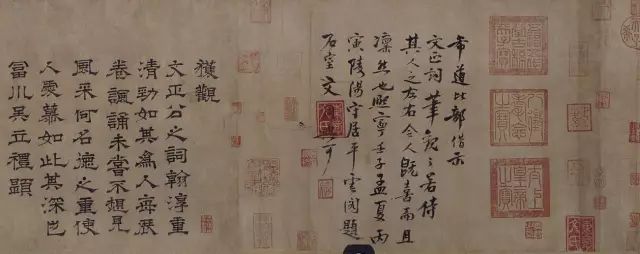 希道比部借示
文正詞筆觀之若侍
其人之左右令人既喜而且
凛然也熙寧壬子孟夏丙
寅陵陽守居平雲閣題
石室文可
獲觀
文正公之詞翰淳重
清勁如其為人每展
卷諷誦未嘗不想見
風采何名德之重使
人愛慕如此其深也
富川吳立禮題